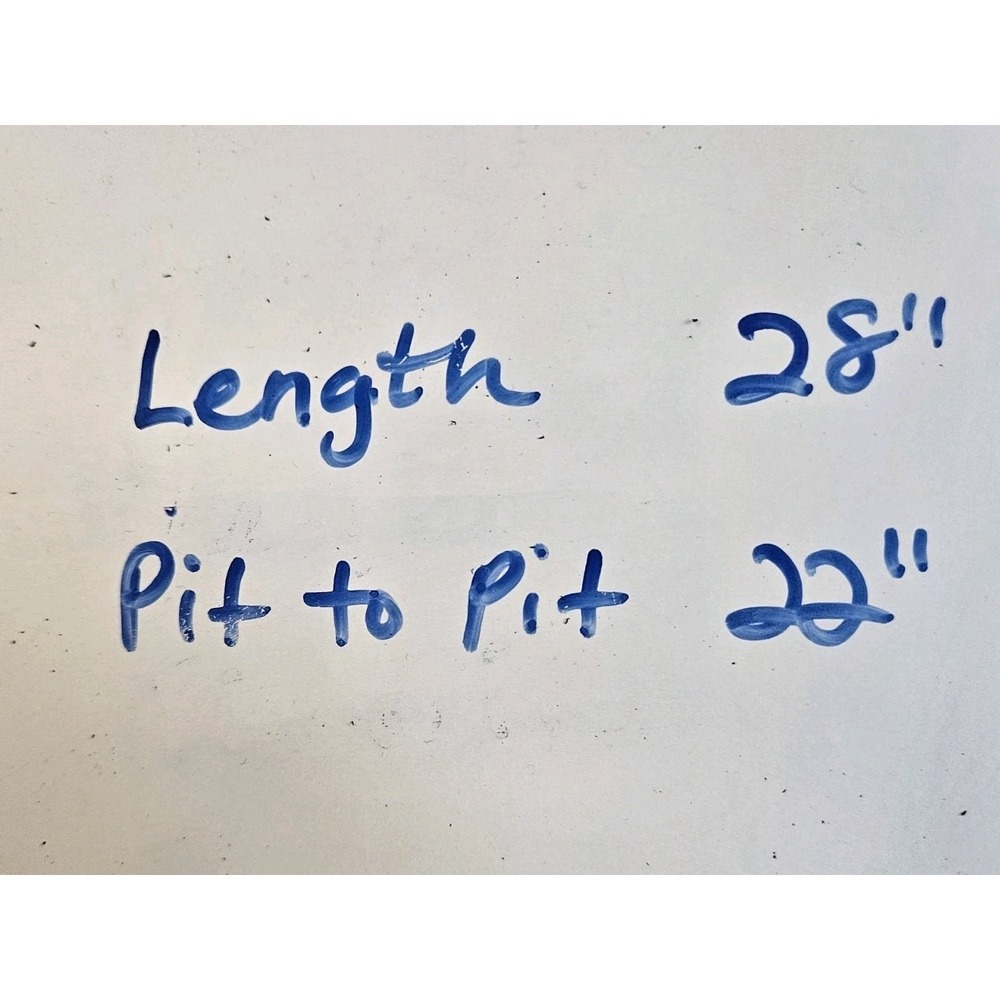 Length 28"
Pit to Pit 22"